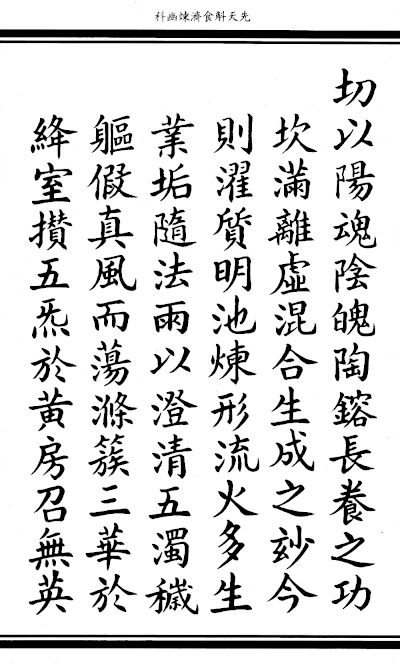 先天斛食濟煉幽科
切以陽魂陰魄陶鎔長養之功
坎滿離虛混合生成之玅今
則濯質明池煉形流火多生
業垢隨法雨以澄清五濁穢
軀假真風而蕩滌簇三華於
絳室攢五炁於黃房召無英